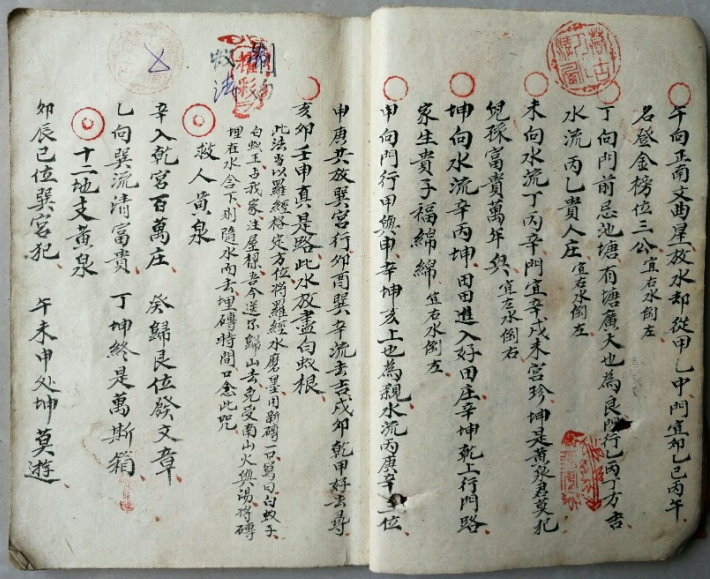 午向正南文曲星放水却從甲乙申門宜卯乙巳丙午
名登金榜位三公宜右水倒左
丁向門前忌池塘有塘廣大也為良門行乙丙丁方吉
水流丙乙貴人庄宜右水倒左
未向水流丁丙辛門宜辛戌未宮珍坤是黄泉君莫犯
兒孫富貴萬年興宜左水倒右
坤向水流辛丙坤田田進入好田庄辛坤乾上行門路
家生貴子福綿綿宜右水倒左
申向門行甲巽申辛坤亥上也為親水流丙庚辛位
甲庚共放巽宮行卯酉巽辛流去吉戌卯乾甲好去尋
亥卯壬申真是路此水放盡白蚁根
制
蚁
法
此法当以羅經格定方位將羅經水磨墨用新磚一只寫白蚁子
白蚁王占我家注屋標吾今送尔歸山去免受南山火與湯将磚
埋在水含下則隨水而去埋磚時間口念此咒
救人黄泉
辛入乾宮百萬庄 癸歸艮位發文章
乙向巽流清富貴 丁坤終是萬斯箱
十二地支黄泉
卯辰巳位巽宮犯 午未申处坤莫遊